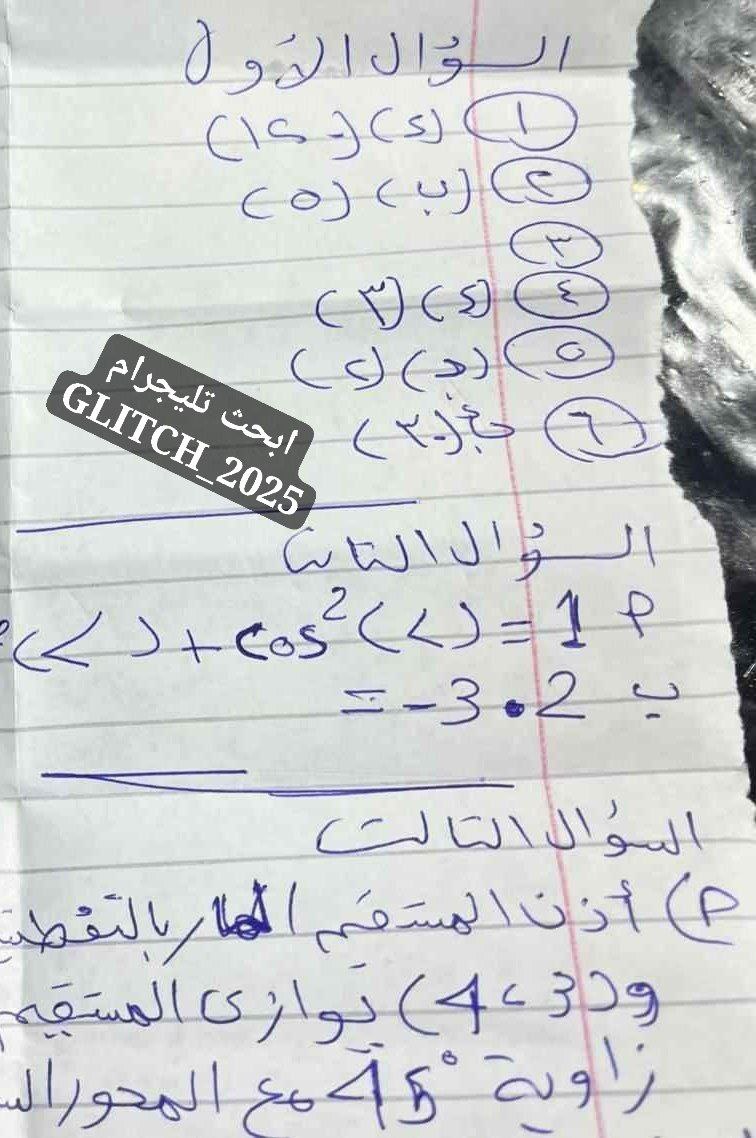 السؤال الأول
١ (د) (-١٢)
٢ (ب) (٥)
٣
٤ (د) (٣)
٥ (د) (٢)
٦ (٣٠)
ابحث تليجرام
GLITCH_2025
السؤال الثاني
(<) + cos²(<) = 1 م
ب = -3.2
السؤال الثالث
م) أذن المستقيم المار بالنقطتين
و(3 ، 4) يوازى المستقيم
زاوية 45° مع المحور